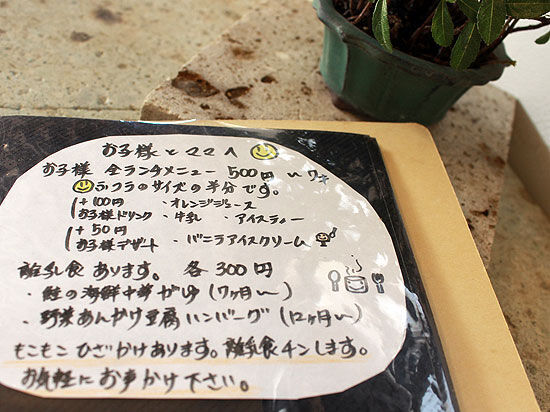 お子様とママへ
お子様 全ランチメニュー 500円〜
ふつうのサイズの半分です。
+100円 ・オレンジジュース
お子様ドリンク ・牛乳 ・アイスティー
+50円
お子様デザート ・バニラアイスクリーム
離乳食あります。 各300円
・鮭の海鮮中華がゆ(7ヶ月〜)
・野菜あんかけ豆腐ハンバーグ(12ヶ月〜)
もこもこひざかけあります。離乳食チンします。
お気軽にお声かけ下さい。